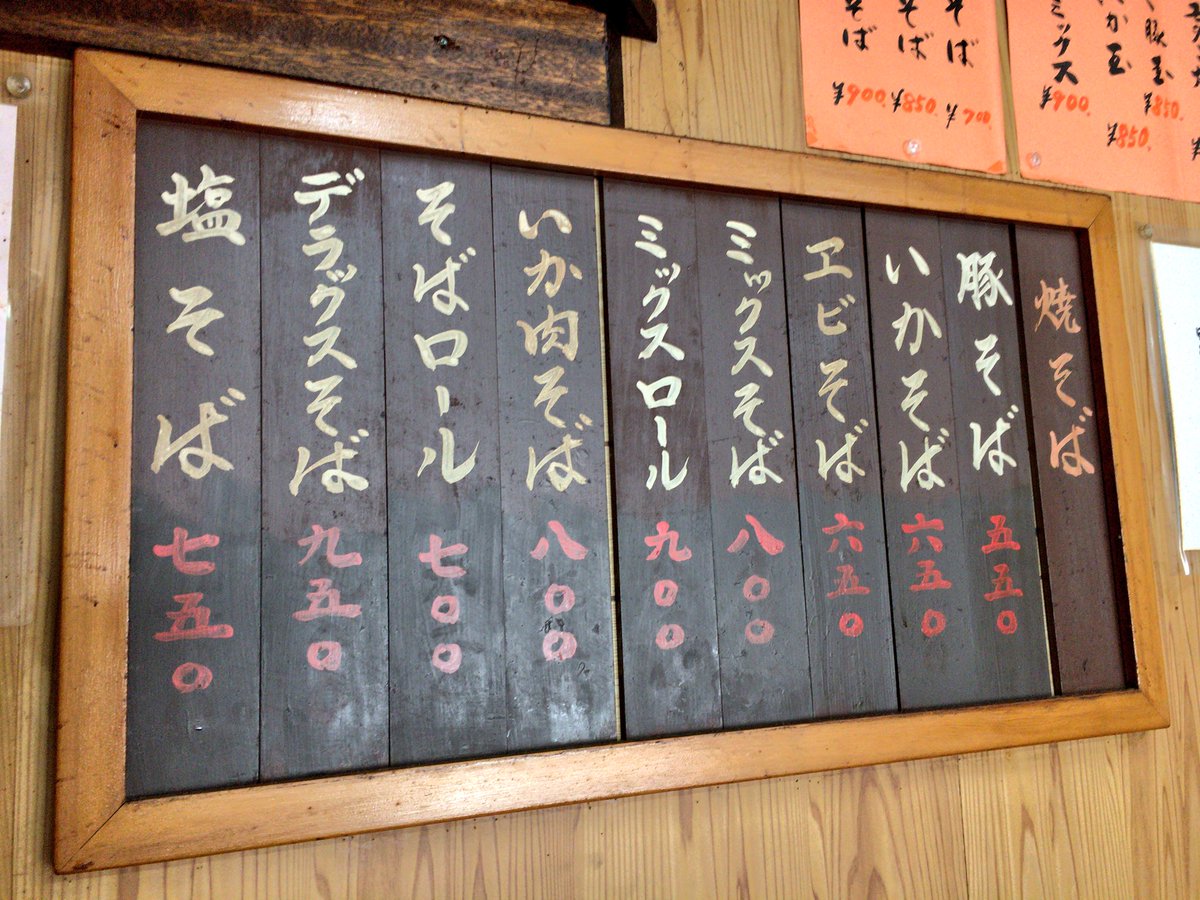 焼そば
豚そば 五五〇
いかそば 六五〇
エビそば 六五〇
ミックスそば 八〇〇
ミックスロール 九〇〇
いか肉そば 八〇〇
そばロール 七〇〇
デラックスそば 九五〇
塩そば 七五〇
豚玉 ¥850.
いか玉 ¥850.
ミックス ¥900.
そば ¥700
そば ¥850
そば ¥900.